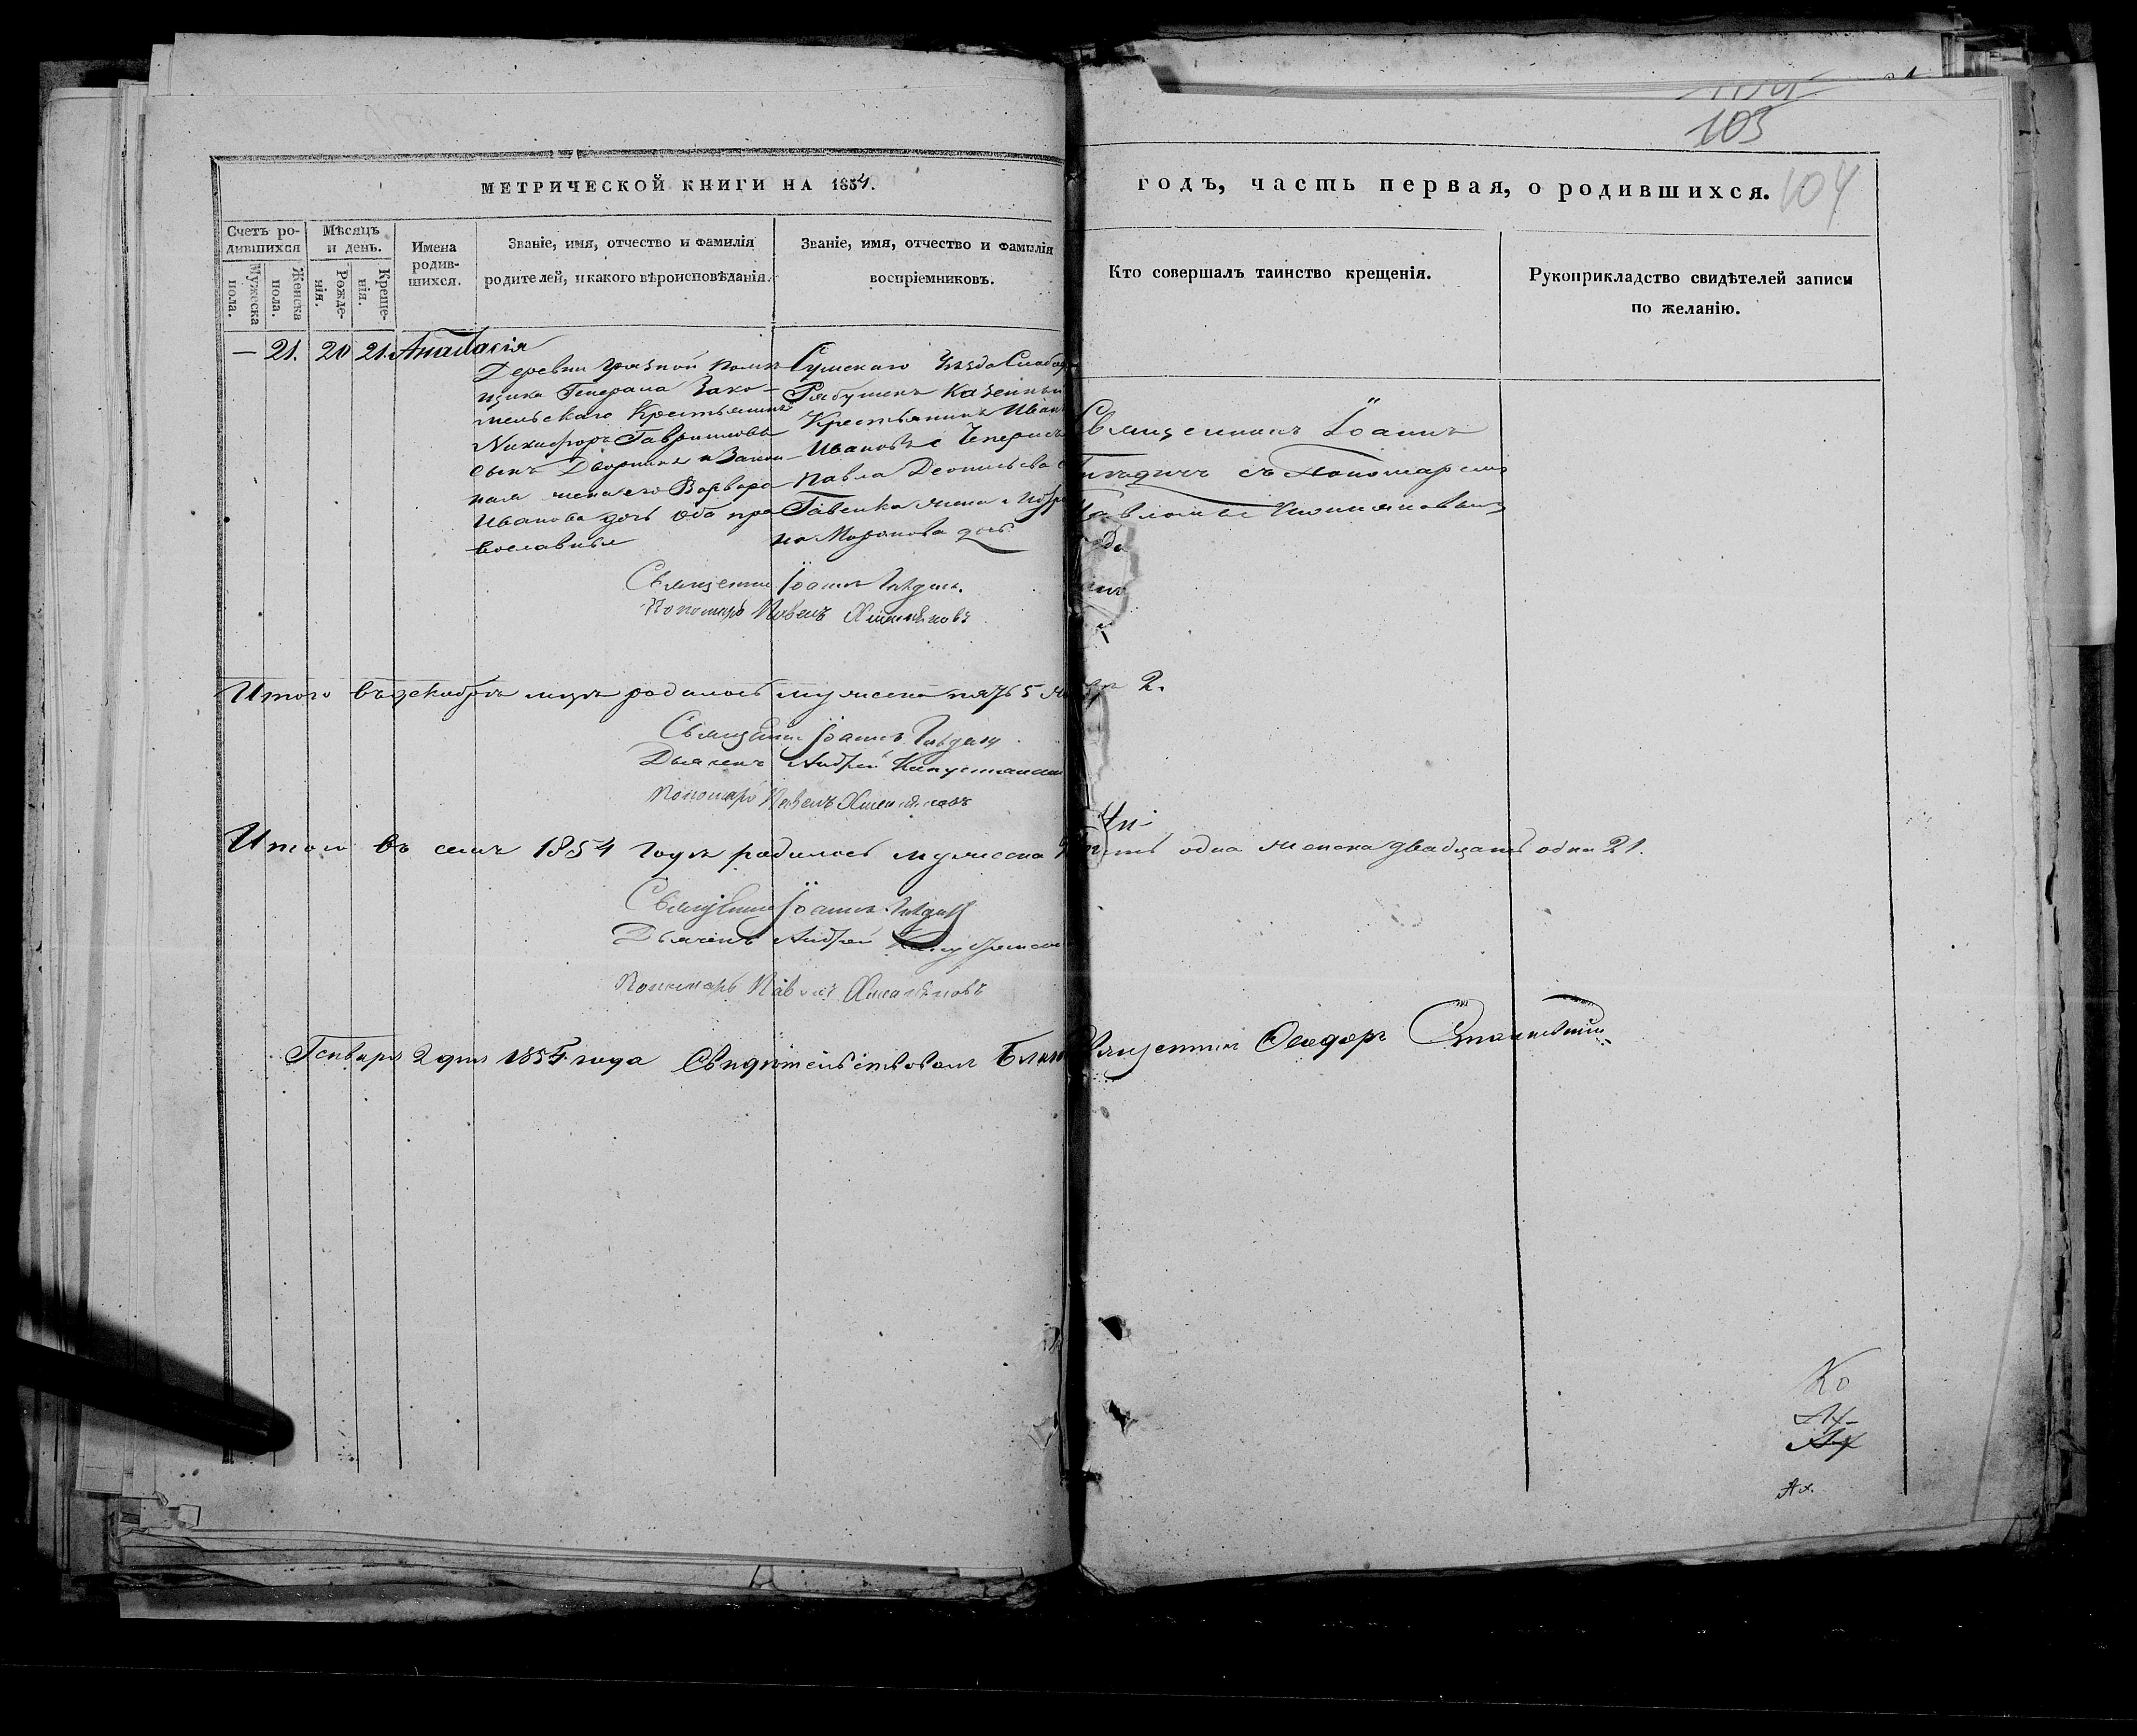 103
104
МЕТРИЧЕСКОЙ КНИГИ НА 1854.
годъ, часть первая, о родившихся.
Счетъ родившихся
Мужеска пола.
Женска пола.
Мѣсяцъ и день.
Рожденія.
Крещенія.
Имена родившихся.
Званіе, имя, отчество и фамилія
родителей, и какого вѣроисповѣданія.
Званіе, имя, отчество и фамилія
воспріемниковъ.
Кто совершалъ таинство крещенія.
Рукоприкладство свидѣтелей записи
по желанію.
— 21. 20 21. Анастасія
Деревни Грязной помѣ
щика Генерала Зако-
мельскаго Крестьянинъ
Никифоръ Гавриловъ
сынъ Дворникъ и Закон-
ная жена его Варвара
Иванова дочь оба пра
вославные
Сумскаго Уѣзда Слобо
Рябушекъ Казенный
Крестьянинъ Иван
Ивановъ
Павла Леонтьева
жена
дочь
Священникъ Іоаннъ
Гнѣдичъ съ Пономаремъ
Павломъ
Священни Іоаннъ Гнѣдич.
Пономарь Павелъ
Итого въ декабрѣ мцѣ родилось мужеска пять 5 2.
Священни Іоаннъ Гнѣдич
Дьячекъ Андрей
Пономарь Павелъ
Итого въ семъ 1854 году родилось мужеска одна женска двадцать одна 21.
Священни Іоаннъ Гнѣдич
Дьячекъ Андрей
Пономарь Павелъ
Генваря 2 дня 1855 года Свидѣтельствовалъ Благ священникъ Феодоръ